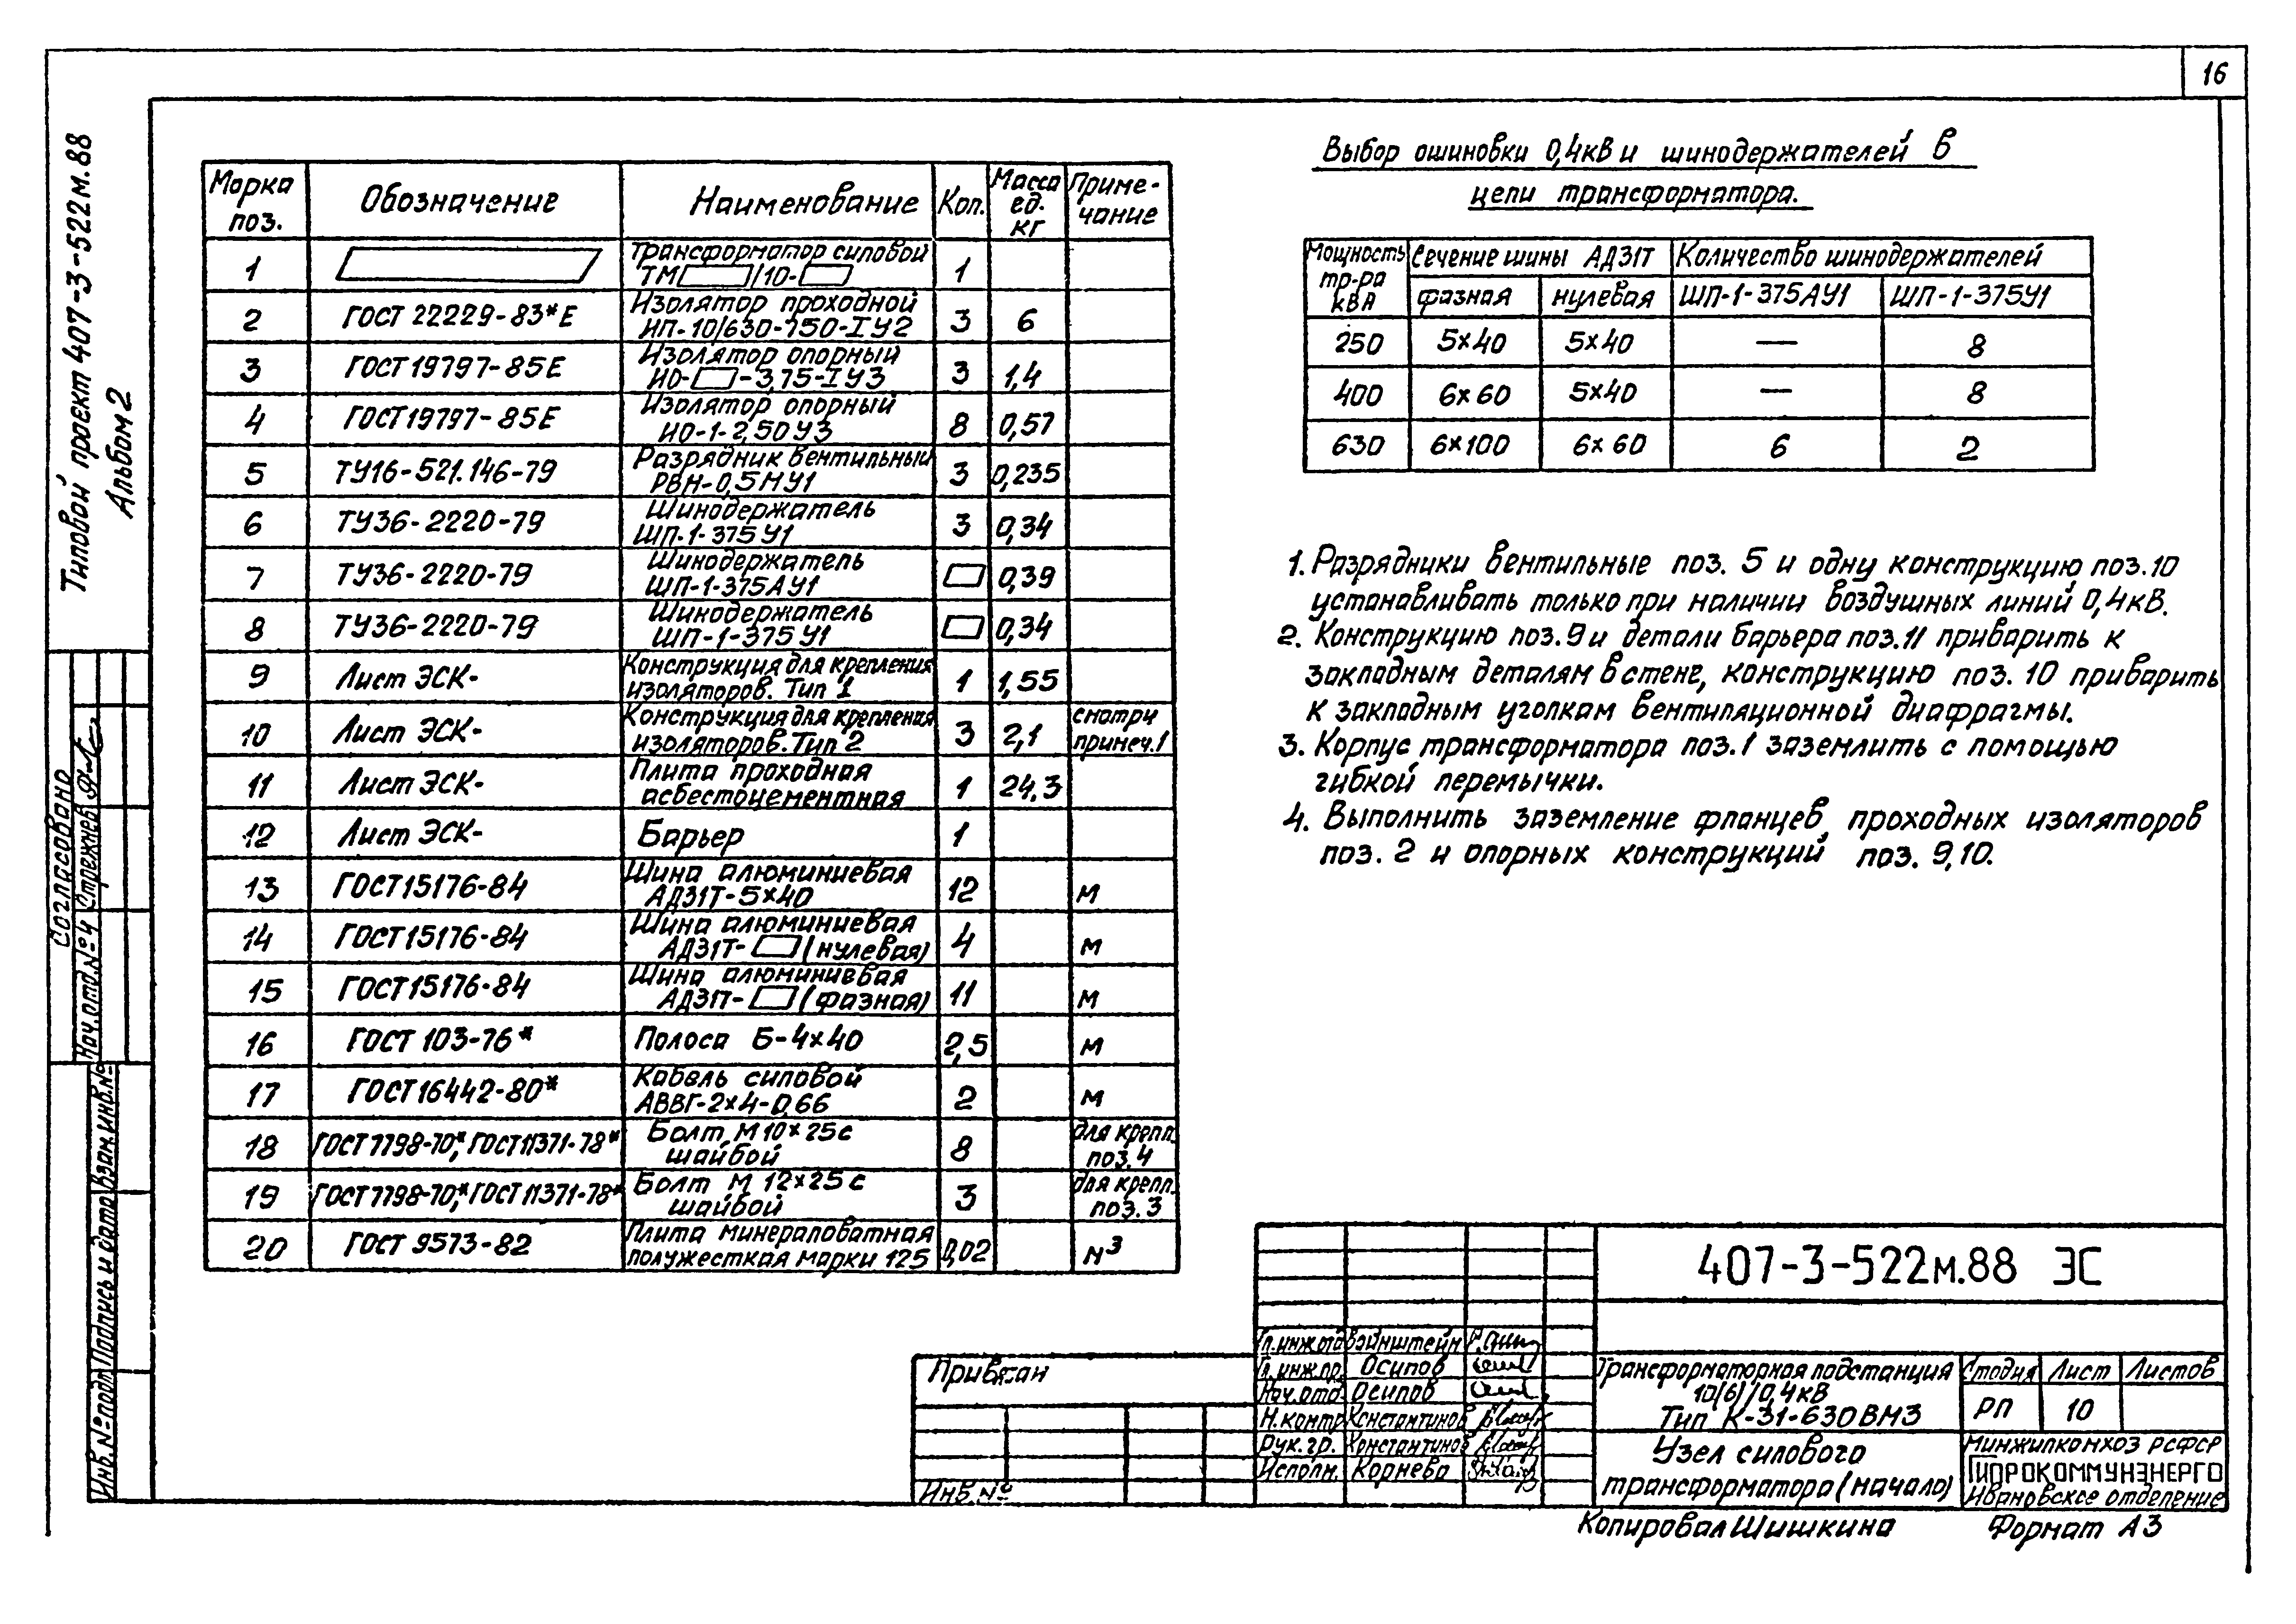 16
Типовой проект 407-3-522м.88
Альбом 2
Марка поз. Обозначение Наименование Кол. Масса ед. кг Примечание
1 Трансформатор силовой ТМ /10- 1
2 ГОСТ 22229-83*Е Изолятор проходной ИП-10/630-750-IУ2 3 6
3 ГОСТ 19797-85Е Изолятор опорный ИО- -3,75-IУ3 3 1,4
4 ГОСТ 19797-85Е Изолятор опорный ИО-1-2,50У3 8 0,57
5 ТУ16-521.146-79 Разрядник вентильный РВН-0,5МУ1 3 0,235
6 ТУ36-2220-79 Шинодержатель ШП-1-375У1 3 0,34
7 ТУ36-2220-79 Шинодержатель ШП-1-375АУ1 0,39
8 ТУ36-2220-79 Шинодержатель ШП-1-375У1 0,34
9 Лист ЭСК- Конструкция для крепления изоляторов. Тип 1 1 1,55
10 Лист ЭСК- Конструкция для крепления изоляторов. Тип 2 3 2,1 смотри примеч.1
11 Лист ЭСК- Плита проходная асбестоцементная 1 24,3
12 Лист ЭСК- Барьер 1
13 ГОСТ 15176-84 Шина алюминиевая АД31Т-5×40 12 м
14 ГОСТ 15176-84 Шина алюминиевая АД31Т- (нулевая) 4 м
15 ГОСТ 15176-84 Шина алюминиевая АД31Т- (фазная) 11 м
16 ГОСТ 103-76* Полоса Б-4×40 2,5 м
17 ГОСТ 16442-80* Кабель силовой АВВГ-2×4-0,66 2 м
18 ГОСТ 7798-70*, ГОСТ 11371-78* Болт М10×25 с шайбой 8 для крепл. поз.4
19 ГОСТ 7798-70*, ГОСТ 11371-78* Болт М12×25 с шайбой 3 для крепл. поз.3
20 ГОСТ 9573-82 Плита минераловатная полужесткая марки 125 0,02 м³
Выбор ошиновки 0,4кВ и шинодержателей в
цепи трансформатора.
Мощность тр-ра кВА Сечение шины АД31Т Количество шинодержателей
фазная нулевая ШП-1-375АУ1 ШП-1-375У1
250 5×40 5×40 — 8
400 6×60 5×40 — 8
630 6×100 6×60 6 2
1. Разрядники вентильные поз. 5 и одну конструкцию поз.10
устанавливать только при наличии воздушных линий 0,4кВ.
2. Конструкцию поз.9 и детали барьера поз.11 приварить к
закладным деталям в стене, конструкцию поз. 10 приварить
к закладным уголкам вентиляционной диафрагмы.
3. Корпус трансформатора поз.1 заземлить с помощью
гибкой перемычки.
4. Выполнить заземление фланцев проходных изоляторов
поз. 2 и опорных конструкций поз. 9,10.
Согласовано
Нач.отд.№4 Стрежнев
Взам.инв.№
Подпись и дата
Инв.№подл.
Привязан
Инв.№
407-3-522м.88 ЭС
Гл.инж.отд Вайнштейн
Гл.инж.пр. Осипов
Нач.отд. Осипов
Н.контр. Константинов
Рук.гр. Константинов
Исполн. Корнева
Трансформаторная подстанция
10(6)/0,4кВ
Тип К-31-630ВМ3
Стадия Лист Листов
РП 10
Узел силового
трансформатора (начало)
Минжилкомхоз РСФСР
ГИПРОКОММУНЭНЕРГО
Ивановское отделение
Копировал Шишкина Формат А3